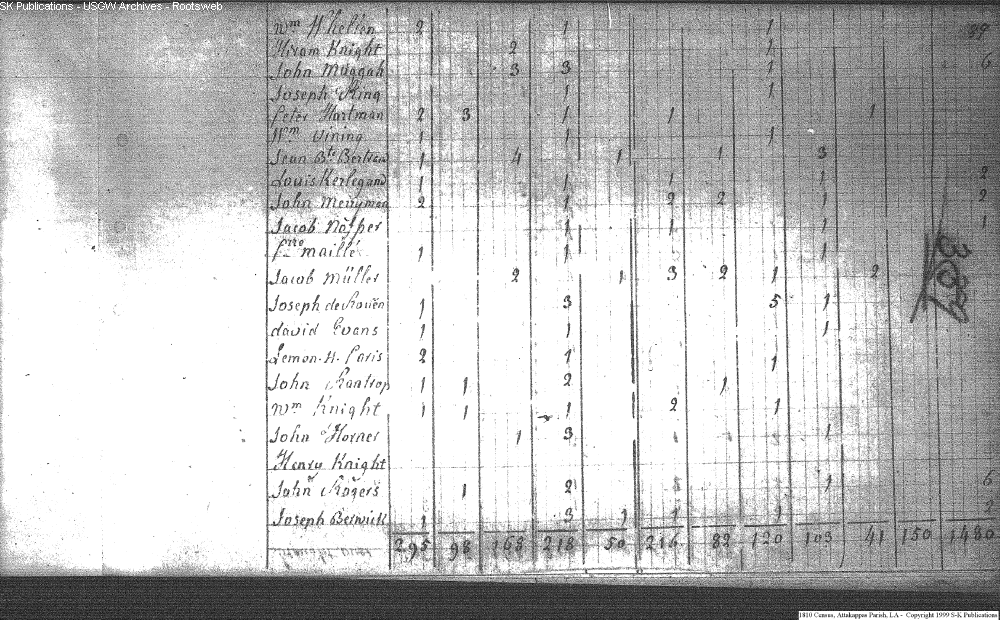 SK Publications - USGW Archives - Rootsweb
Wm Whelten 2 1 1 89
Hiram Knight 2 1
John Muggah 3 3 1 6
Joseph King 1 1
Peter Hartman 2 3 1 1 1
Wm Vining 1 1 1
Jean Bte Bertran 1 4 1 1 3
Louis Kerlegand 1 1 1 1 2
John Merryman 2 1 2 2 1 2
Jacob 1 1 1 1
Prre maillé 1 1 1
Jacob Müller 2 1 3 2 1 2
Joseph de Rouën 1 3 5 1
david Evans 1 1 1
Lemon. H. Paris 2 1 1
John Rantrop 1 1 2 1
Wm Knight 1 1 1 2 1
John Horner 1 3 1
Henry Knight
John Rogers 1 2 1 6
Joseph Berwick 1 3 1 1 1
295 98 168 218 50 216 82 120 103 41 150 1480
1810 Census, Attakappas Parish, LA - Copyright 1999 S-K Publications